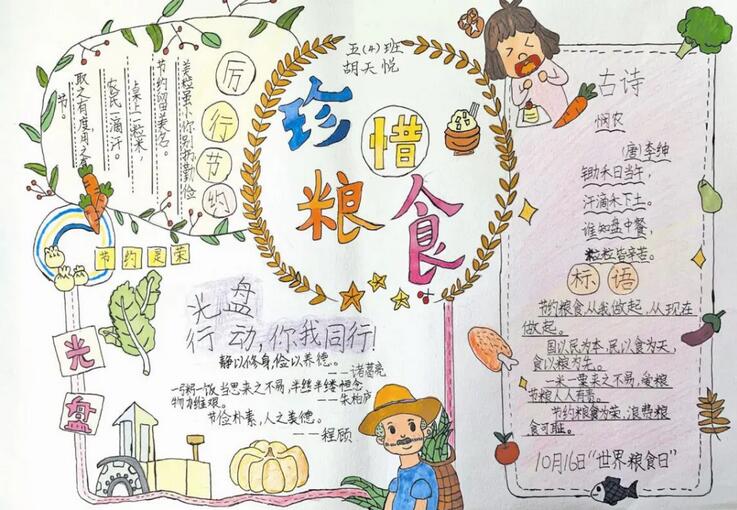 五(4)班
胡天悦
珍惜
粮食
厉行节约
美粒虽小你别扔勤俭
节约留美名。
桌上一粒米,
农民一滴汗。
取之有度,用之有
节。
节约是荣
光盘
光盘
行动,你我同行!
静以修身,俭以养德。
——诸葛亮
一粥一饭当思来之不易,半丝半缕恒念
物力维艰。 ——朱柏庐
节俭朴素,人之美德。
——程顾
古诗
悯农
(唐)李绅
锄禾日当午,
汗滴禾下土。
谁知盘中餐,
粒粒皆辛苦。
标语
节约粮食,从我做起,从现在
做起。
国以民为本,民以食为天,
食以粮为先。
一米一粟来之不易,爱粮
节粮人人有责。
节约粮食为荣,浪费粮
食可耻。
10月16日“世界粮食日”